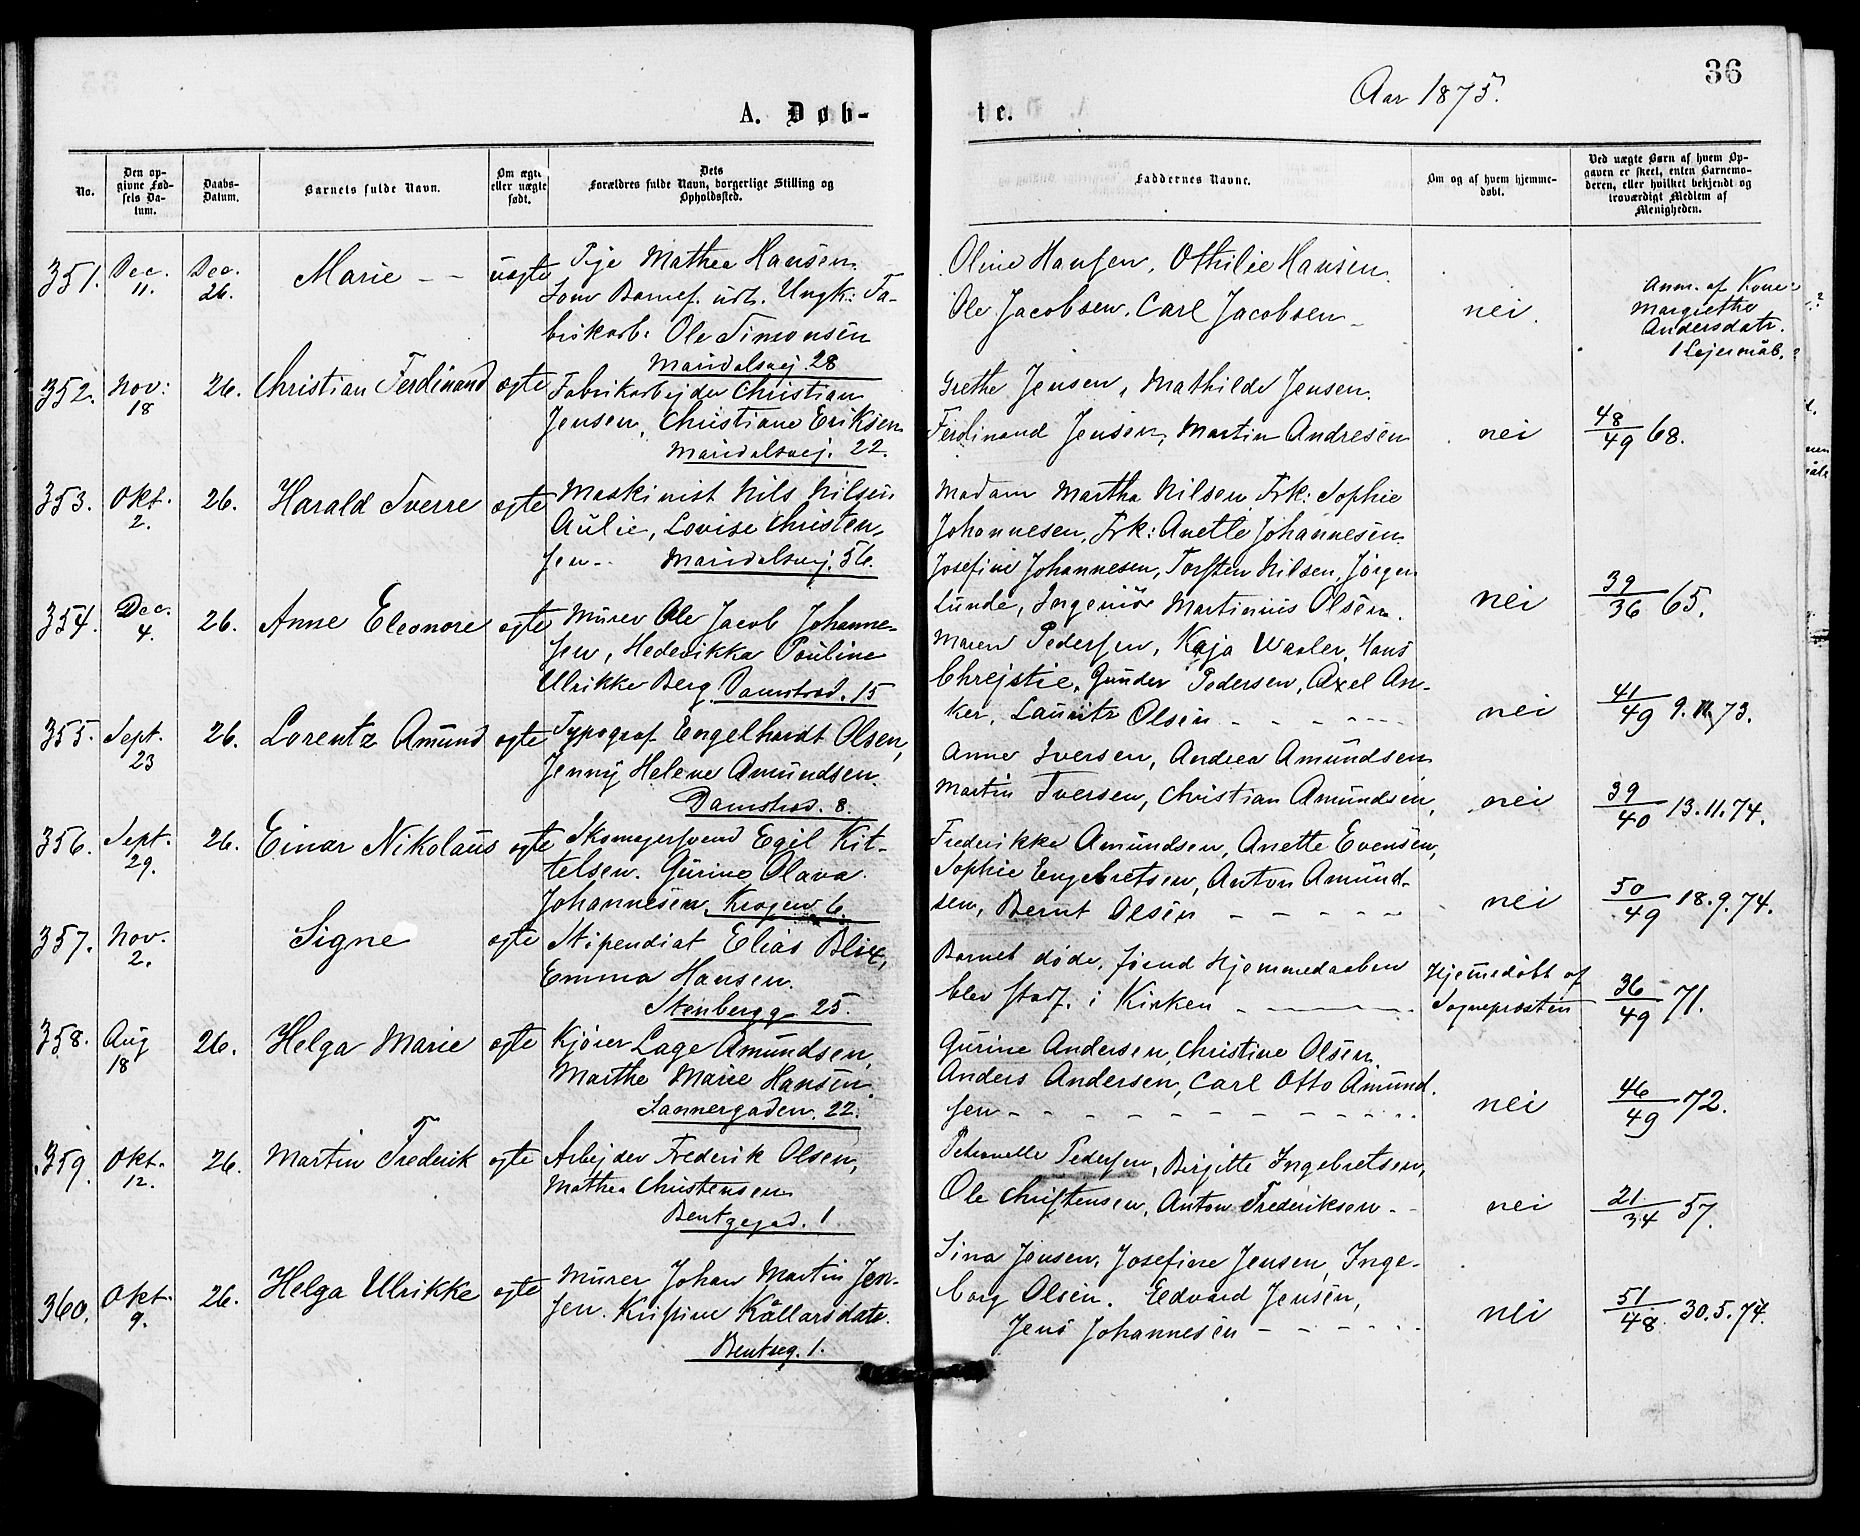 36
Aar 1875.
A. Døb-
te.
No.
Den op-
givne Fød-
sels Da-
tum.
Daabs-
Datum.
Barnets fulde Navn.
Om ægte
eller uægte
født.
Dets
Forældres fulde Navn, borgerlige Stilling og
Opholdssted.
Faddernes Navne.
Om og af hvem hjemme-
døbt.
Ved uægte Børn af hvem Op-
gaven er skeet, enten Barnemo-
deren, eller hvilket bekjendt og
troværdigt Medlem af
Menigheden.
351. Dec. 11. Dec. 26. Marie - - uægte
Pige Mathea Hansen.
som Barnef. udl. Ungk: Fa-
brikarb: Ole Simonsen
Maridalsvej 28
Oline Hansen, Othilie Hansen
Ole Jacobsen, Carl Jacobsen -
nei.
Anm. af Kone
Margrethe
Andersdatr.
1 Lejermaal.
352. Nov: 18 26. Christian Ferdinand ægte
Fabrikarbejder Christian
Jensen, Christiane Eriksen
Maridalsvej. 22.
Grethe Jensen, Mathilde Jensen.
Ferdinand Jensen, Martin Andresen
nei
48/49 68.
353. Okt. 2. 26. Harald Sverre ægte
Maskinist Nils Nilsen
Aulie, Lovise Christen-
sen - Maridalsvej. 56.
Madam Martha Nilsen, Frk: Sophie
Johannesen, Frk: Anette Johannesen
Josefine Johannesen, Torsten Nilsen, Jørgen
Lunde, Ingeniør Martinius Olsen.
nei
39/36 65.
354. Dec. 4. 26. Anne Eleonore ægte
Murer Ole Jacob Johanne-
sen, Hederikka Pauline
Ulrikke Berg. Damstræd. 15
Maren Pedersen, Kaja Waaler, Hans
Chrejstie, Gunder Pedersen, Axel An-
ker, Lauritz Olsen - - - - -
nei
41/49 9.11.73.
355. Sept. 23 26. Lorentz Amund ægte
Typograf Engelhardt Olsen,
Jenny Helene Amundsen.
Damstræd. 8.
Anne Iversen, Andrea Amundsen
Martin Iversen, Christian Amundsen,
nei
39/40 13.11.74.
356. Sept. 29. 26. Einar Nikolaus ægte
Skomagersvend Egil Kit-
telsen. Gurine Olava
Johannesen, Krogen 6.
Frederikke Amundsen, Anette Evensen,
Sophie Engebretsen, Anton Amund-
sen, Bernt Olsen - - - - -
nei
50/49 18.9.74.
357. Nov. 2. Signe ægte
Stipendiat Elias Blix,
Emma Hansen.
Stenbergg 25.
Barnet døde, førend Hjemmedaaben
blev stadf. i Kirken - - - -
Hjemmedøbt af
Sogneprosten
36/49 71.
358. Aug 18 26. Helga Marie ægte
Kjører Lage Amundsen,
Marthe Marie Hansen.
Sannergaden. 22.
Gurine Andersen, Christine Olsen
Anders Andersen, Carl Otto Amund-
sen - - - - - - - - - -
nei
46/49 72.
359. Okt. 12. 26. Martin Frederik ægte
Arbejder Frederik Olsen,
Mathea Christensen
Bentzegad. 1.
Petronelle Pedersen, Birgitte Ingebretsen,
Ole Christensen, Anton Frederiksen -
nei
21/34 57.
360. Okt. 9. 26. Helga Ulrikke ægte
Murer Johan Martin Jen-
sen. Kristine Kållarsdatr.
Bentseg. 1.
Sina Jensen, Josefine Jensen, Inge-
borg Olsen. Edvard Jensen,
Jens Johannesen - - - - -
nei
51/48 30.5.74.